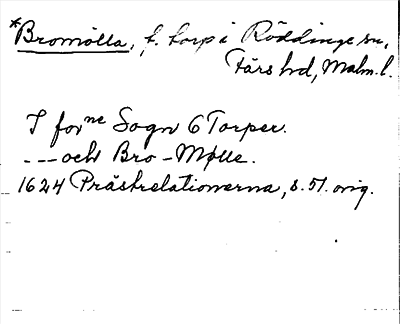 *Bromölla, f. torp i Röddinge sn,
Färs hd, Malm. l.
I for^ne Sogn 6 Torper.
---och Bro-Mølle.
1624 Prästrelationerna, s. 51. orig.